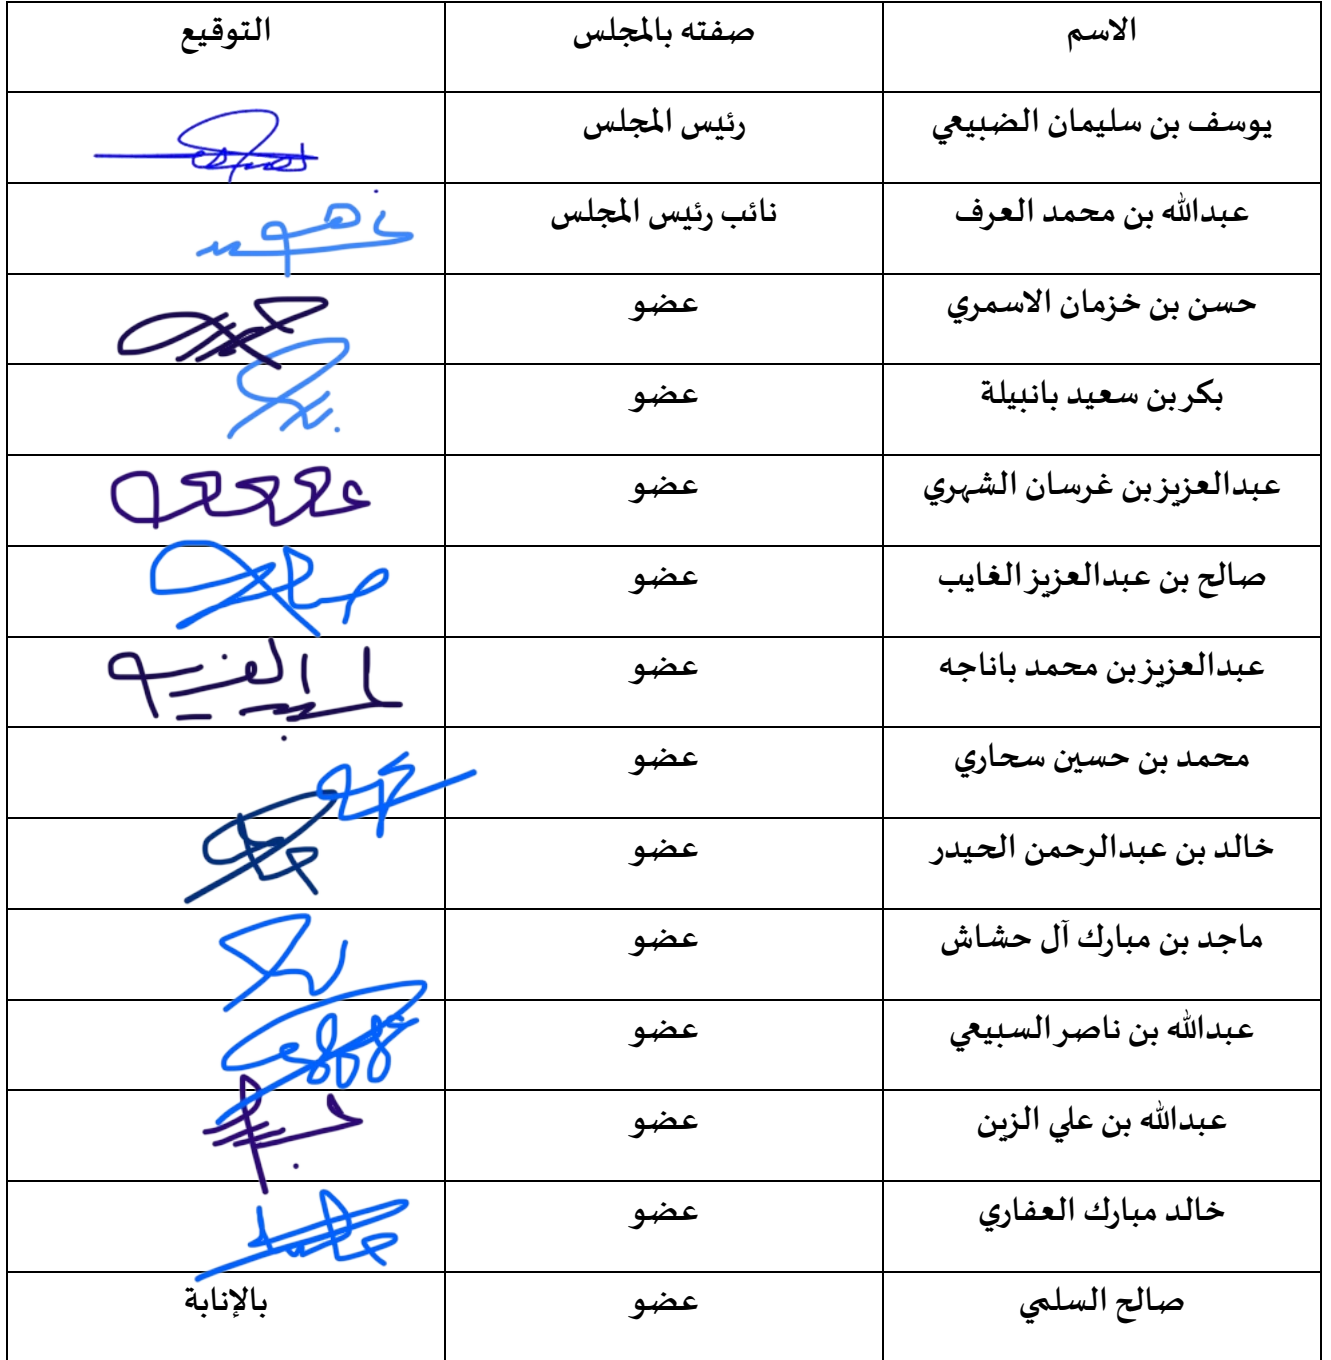 الاسم صفته بالمجلس التوقيع
يوسف بن سليمان الضبيعي رئيس المجلس
عبدالله بن محمد العرف نائب رئيس المجلس
حسن بن خزمان الاسمري عضو
بكر بن سعيد بانبيلة عضو
عبدالعزيز بن غرسان الشهري عضو
صالح بن عبدالعزيز الغايب عضو
عبدالعزيز بن محمد باناجه عضو
محمد بن حسين سحاري عضو
خالد بن عبدالرحمن الحيدر عضو
ماجد بن مبارك آل حشاش عضو
عبدالله بن ناصر السبيعي عضو
عبدالله بن علي الزين عضو
خالد مبارك العفاري عضو
صالح السلمي عضو بالإنابة